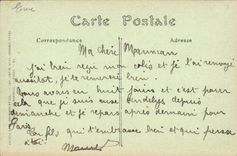 Eure
Carte Postale
Correspondance
Adresse
Ma chère Maman
j'ai bien reçu mon colis et je l'ai renvoyé
aussitôt, je te remercie bien.
Nous avais en huit jours et c'est pour
cela que je suis aux Andelys depuis
dimanche et je repars après demain pour
Paris
Ton fils qui t'embrasse bien et qui pense
à toi.